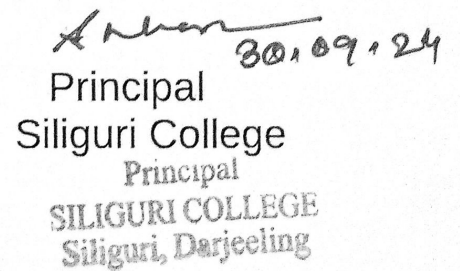 30.09.24
Principal
Siliguri College
Principal
SILIGURI COLLEGE
Siliguri, Darjeeling